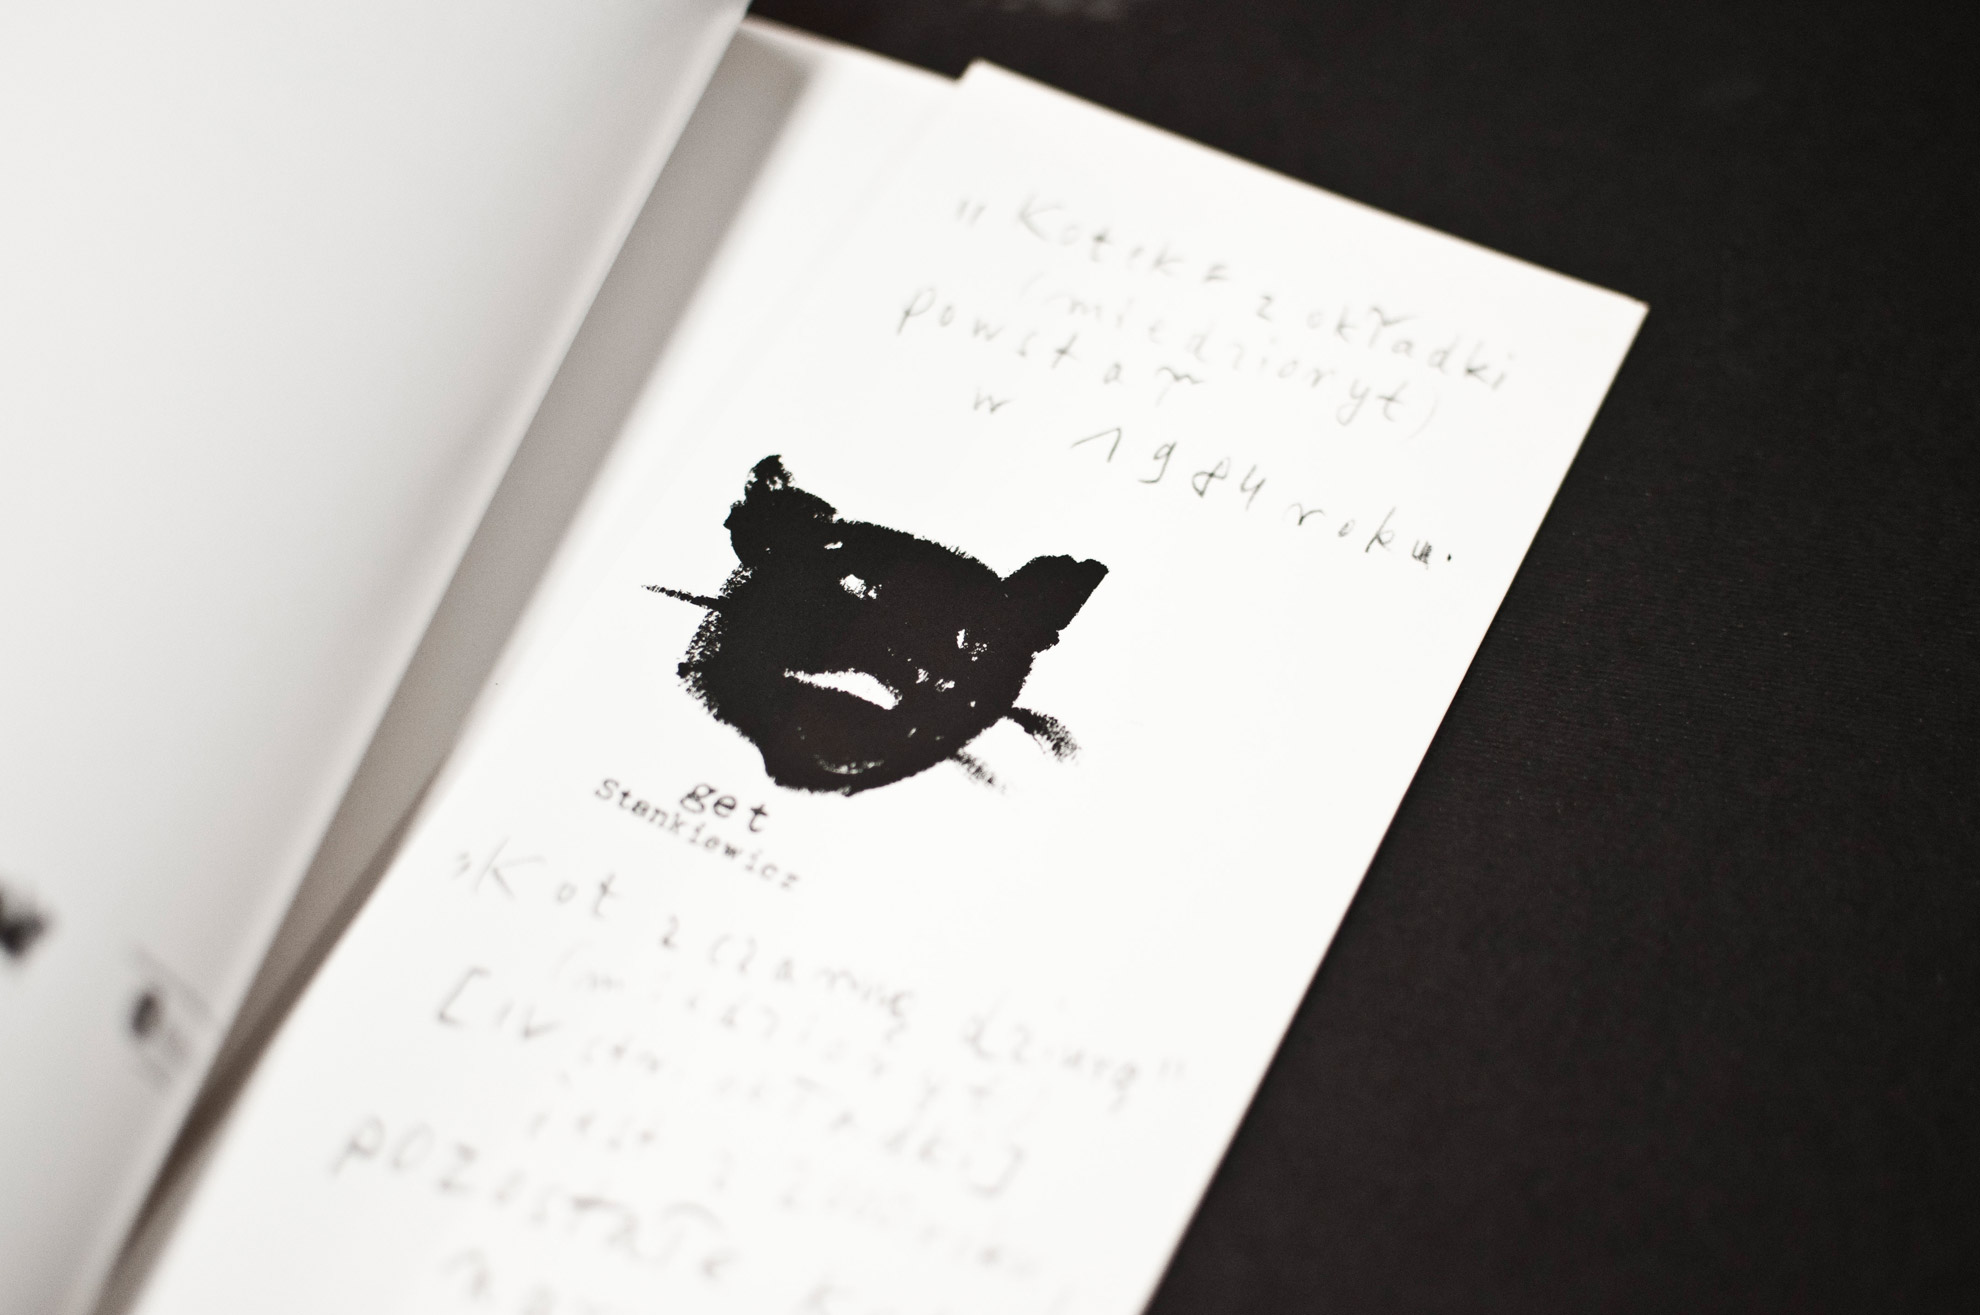 "Kotek z okładki
(miedzioryt)
powstał
w 1984 roku.
get
Stankiewicz
"Kot z czarną dziurą"
(miedzioryt)
[IV str. okładki]
jest z
pozostałe